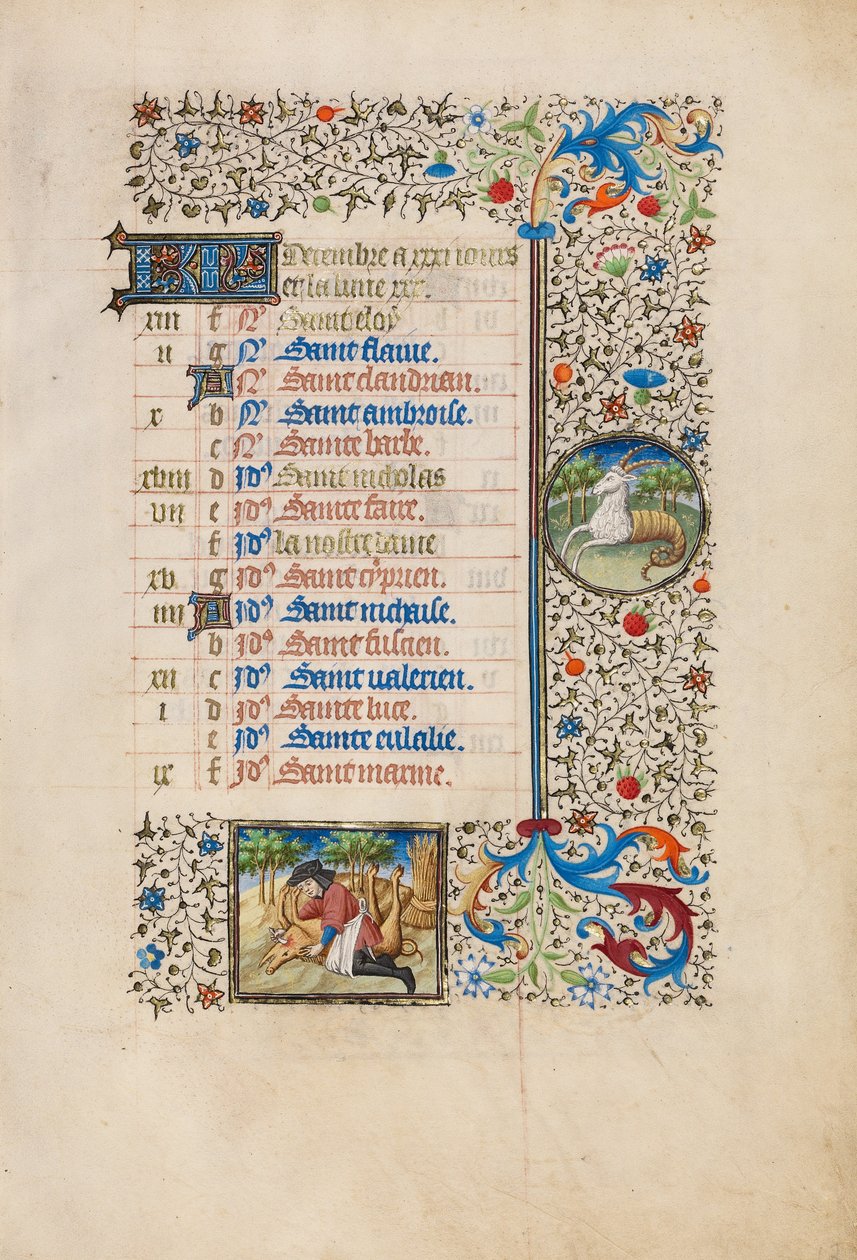 KL Decembre a xxxi iours
et la lune xxx.
xiii f N Saint eloy
ii g N Saint flaiue.
A N Saint claudrian.
x b N Saint ambroise.
c N Sainte barbe.
xviii d Id Saint nicholas
vii e Id Sainte faire.
f Id la nostre dame
xv g Id Saint cyprien.
iiii A Id Saint nichaise.
b Id Saint fuscien.
xii c Id Saint ualerien.
i d Id Sainte luce.
e Id Sainte eulalie.
ix f Id Saint maxime.